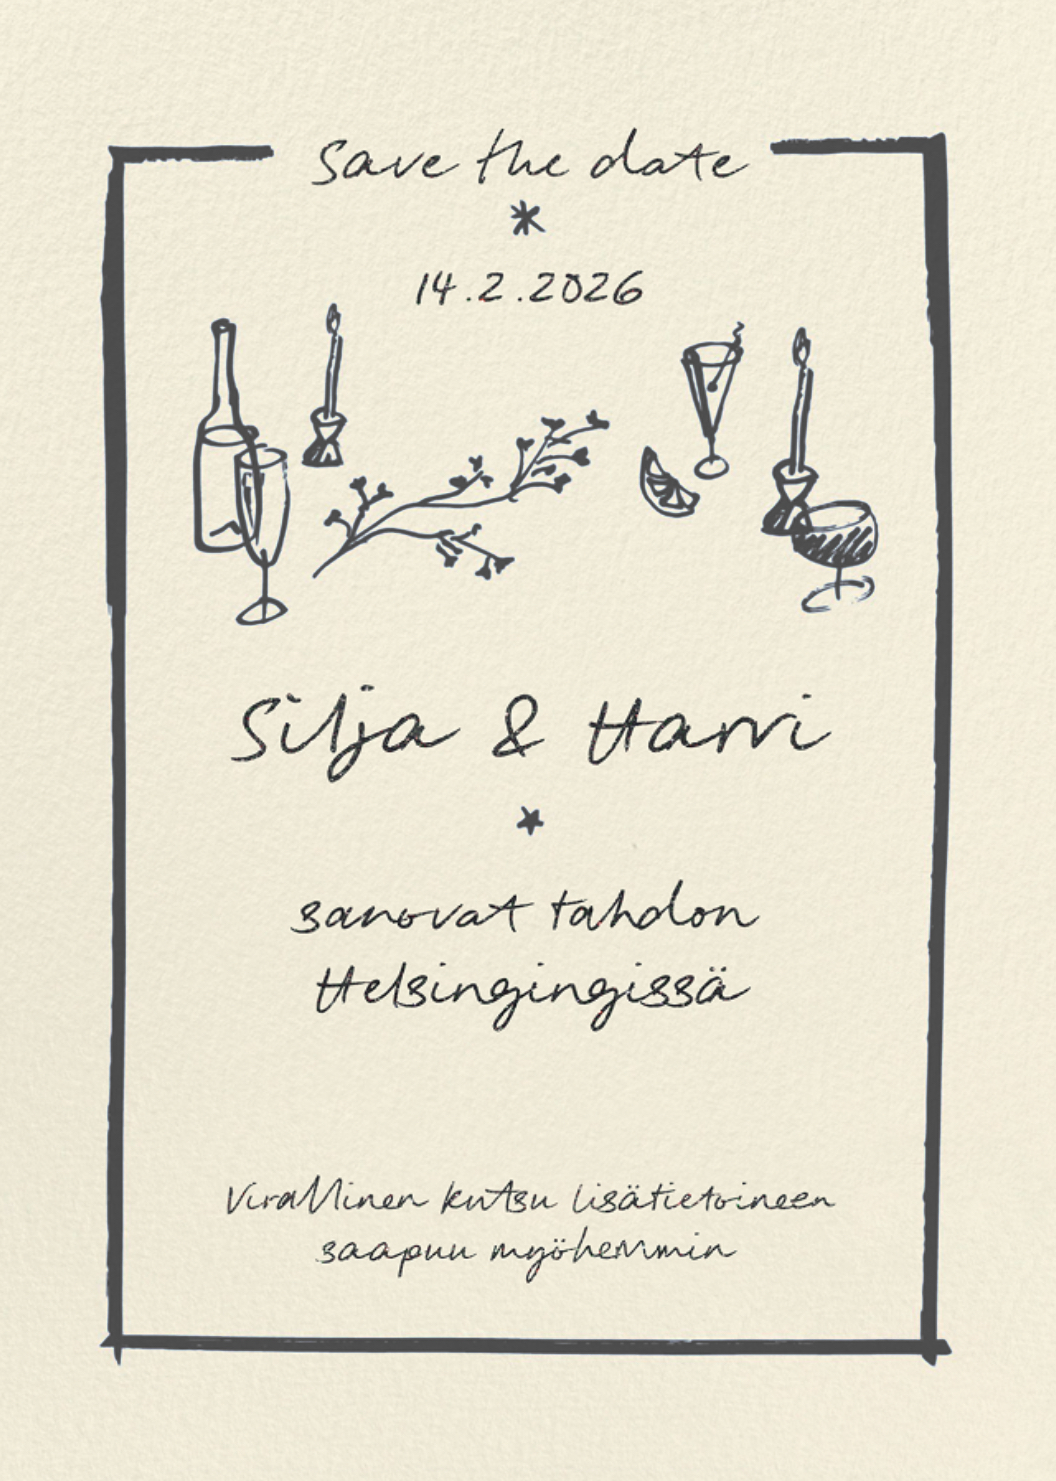 Save the date
14.2.2026
Silja & Harri
sanovat tahdon
Helsingingissä
Virallinen kutsu lisätietoineen
saapuu myöhemmin